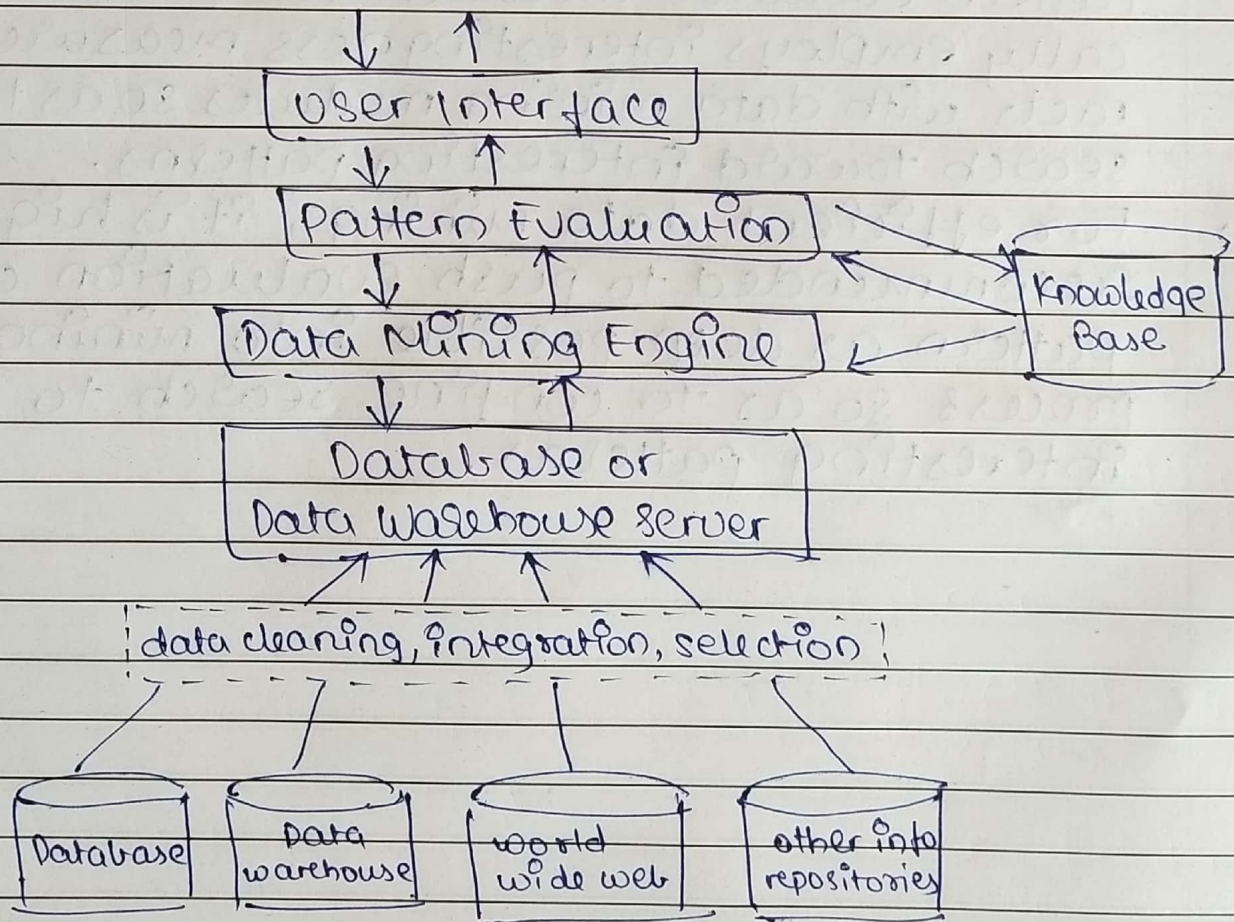 User Interface
Pattern Evaluation
Knowledge
Base
Data Mining Engine
Database or
Data Warehouse server
data cleaning, integration, selection
Database
Data
warehouse
world
wide web
other info
repositories